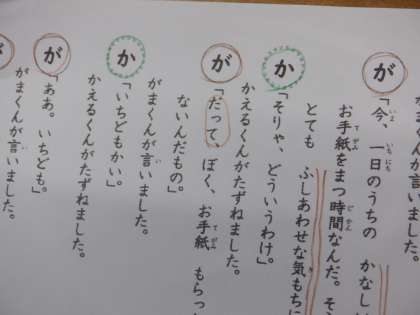 がまくんが言いました。
が「今、一日のうちの かなし
お手紙をまつ時間なんだ。そ
とても ふしあわせな気もちに
か「そりゃ、どういうわけ。」
かえるくんがたずねました。
が「だって、ぼく、お手紙 もらっ
ないんだもの。」
がまくんが言いました。
か「いちどもかい。」
かえるくんがたずねました。
が「ああ。いちども。」
がまくんが言いました。
が